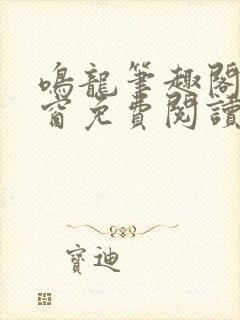 鳴龍筆趣閣
窗免費閱讀
寶迪